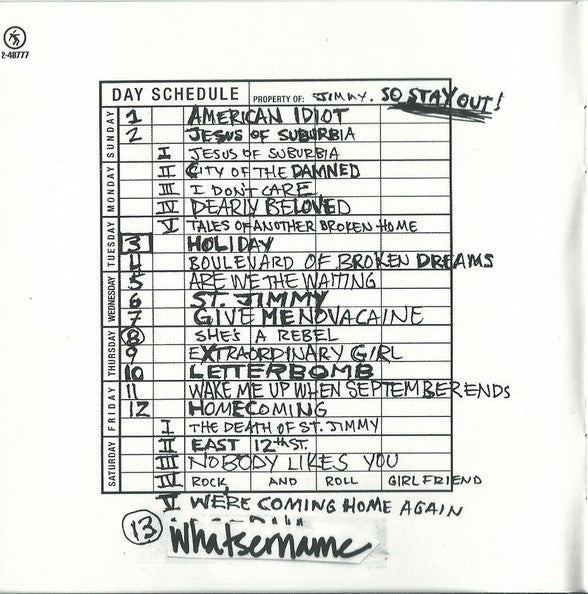 2-48777
DAY SCHEDULE PROPERTY OF: JIMMY. SO STAY OUT!
SUNDAY
1 AMERICAN IDIOT
2 JESUS OF SUBURBIA
I JESUS OF SUBURBIA
MONDAY
II CITY OF THE DAMNED
III I DON'T CARE
IV DEARLY BELOVED
TUESDAY
V TALES OF ANOTHER BROKEN HOME
3 HOLIDAY
4 BOULEVARD OF BROKEN DREAMS
WEDNESDAY
5 ARE WE THE WAITING
6 ST. JIMMY
7 GIVE ME NOVACAINE
THURSDAY
8 SHE'S A REBEL
9 EXTRAORDINARY GIRL
10 LETTERBOMB
FRIDAY
11 WAKE ME UP WHEN SEPTEMBER ENDS
12 HOMECOMING
I THE DEATH OF ST. JIMMY
SATURDAY
II EAST 12TH ST.
III NOBODY LIKES YOU
IV ROCK AND ROLL GIRLFRIEND
V WE'RE COMING HOME AGAIN
13 Whatsername